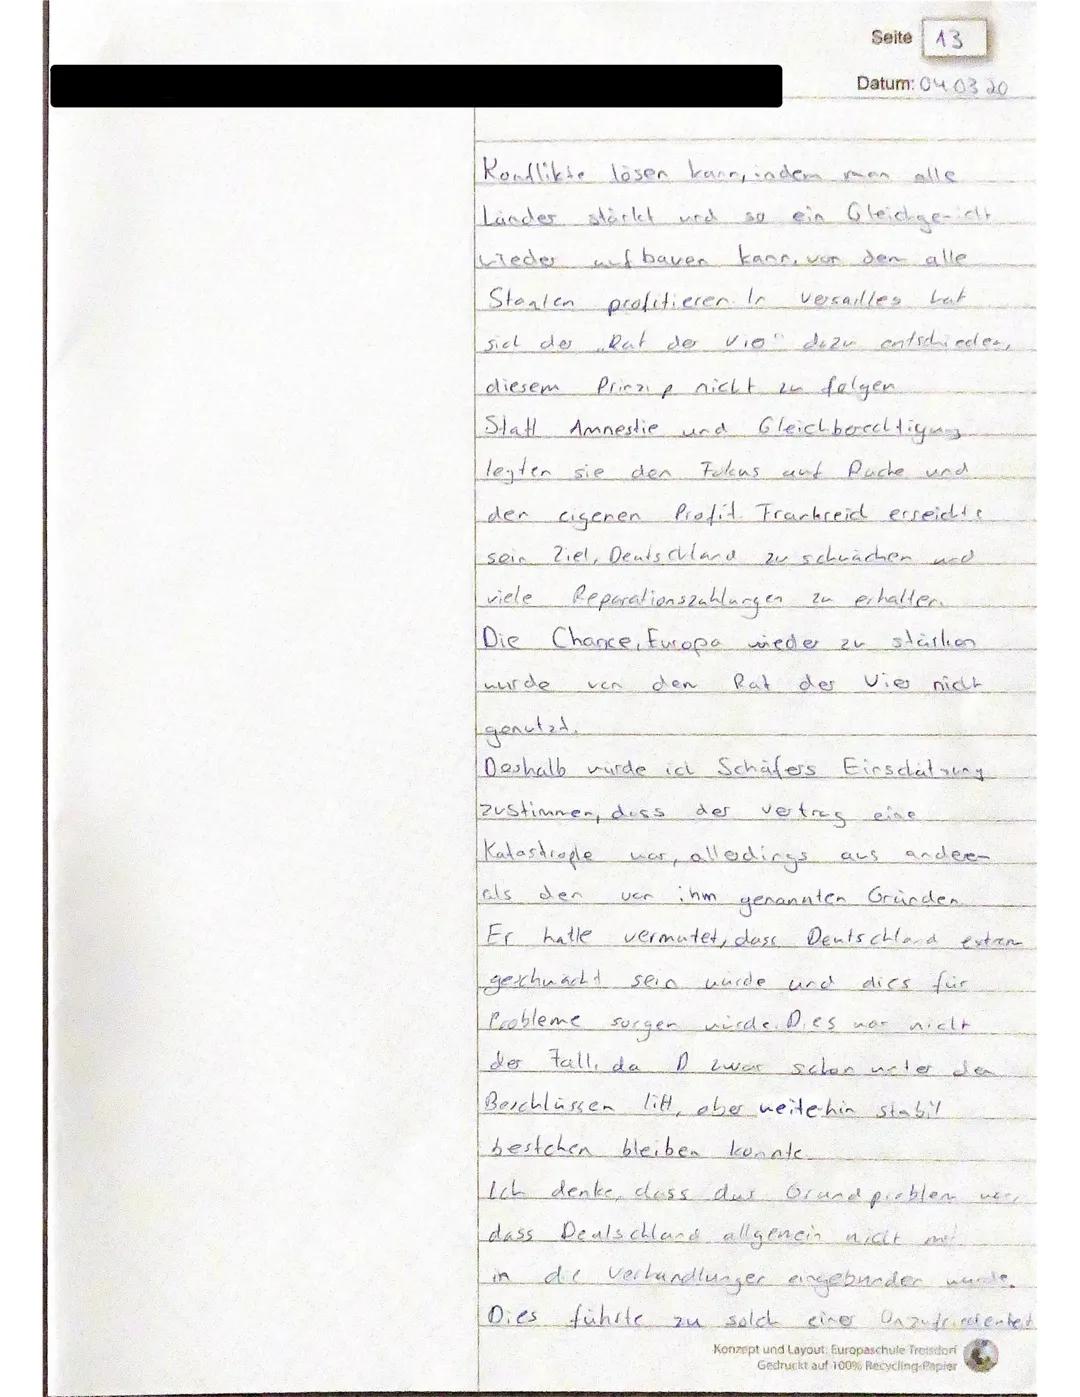 Seite 13
Datum: 04.03.20
Konflikte lösen kann, indem man alle
Länder stärkt und so ein Gleichgewicht
wieder aufbauen kann, von dem alle
Staaten profitieren. In Versailles hat
sich der „Rat der Vier" dazu entschieden,
diesem Prinzip nicht zu folgen.
Statt Amnestie und Gleichberechtigung
legten sie den Fokus auf Rache und
den eigenen Profit. Frankreich erreichte
sein Ziel, Deutschland zu schwächen und
viele Reparationszahlungen zu erhalten.
Die Chance, Europa wieder zu stärken
wurde von dem Rat der Vier nicht
genutzt.
Deshalb würde ich Schäfers Einschätzung
zustimmen, dass der Vertrag eine
Katastrophe war, allerdings aus anderen
als den von ihm genannten Gründen.
Er hatte vermutet, dass Deutschland extrem
geschwächt sein würde und dies für
Probleme sorgen würde. Dies war nicht
der Fall, da D zwar schon unter den
Beschlüssen litt, aber weiterhin stabil
bestehen bleiben konnte.
Ich denke, dass das Grundproblem war,
dass Deutschland allgemein nicht mit
in die Verhandlungen eingebunden wurde.
Dies führte zu solch einer Unzufriedenheit
Konzept und Layout: Europaschule Troisdorf
Gedruckt auf 100% Recycling-Papier